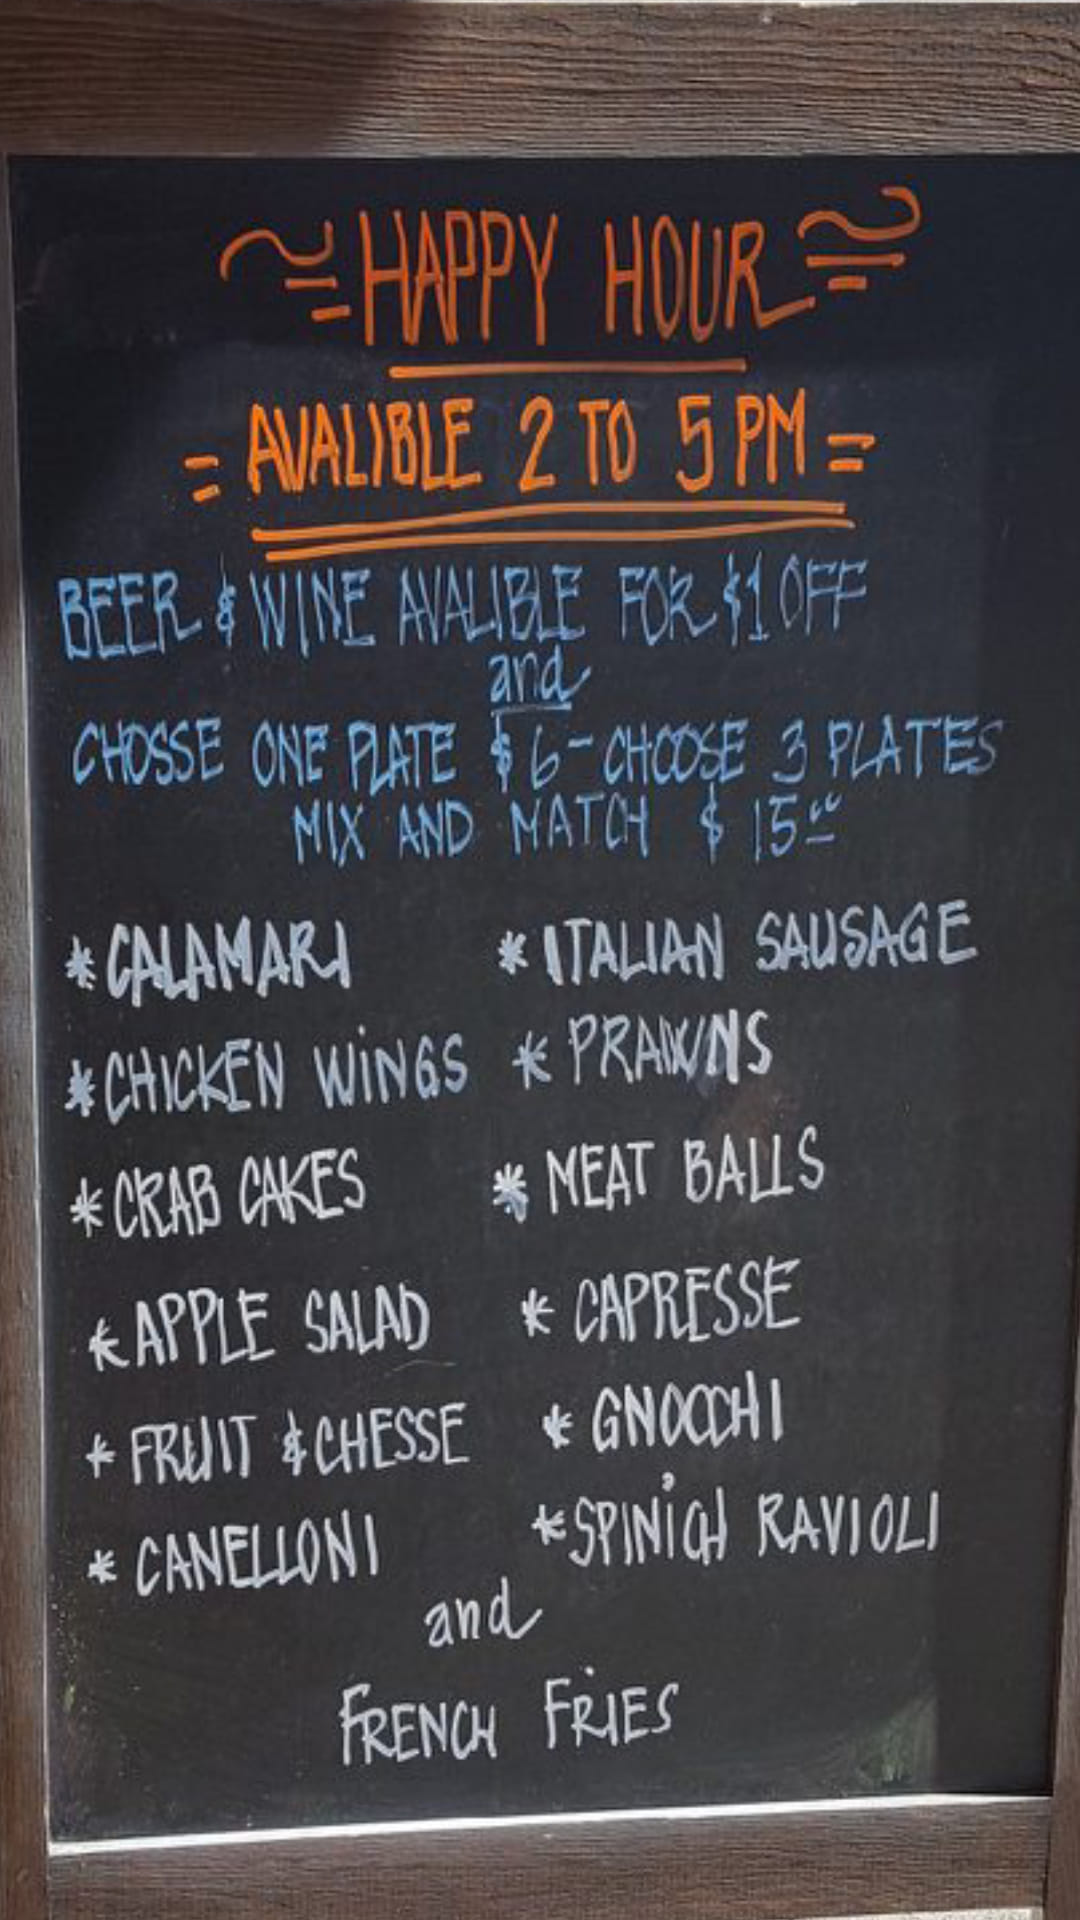 HAPPY HOUR
AVALIBLE 2 TO 5 PM
BEER & WINE AVALIBLE FOR $1 OFF
and
CHOSSE ONE PLATE $6 - CHOOSE 3 PLATES
MIX AND MATCH $15.00
* CALAMARI * ITALIAN SAUSAGE
* CHICKEN WiNGS * PRAWNS
* CRAB CAKES * MEAT BALLS
* APPLE SALAD * CAPRESSE
* FRUIT & CHESSE * GNOCCHI
* CANELLONI * SPINiCH RAVIOLI
and
FRENCH FRIES